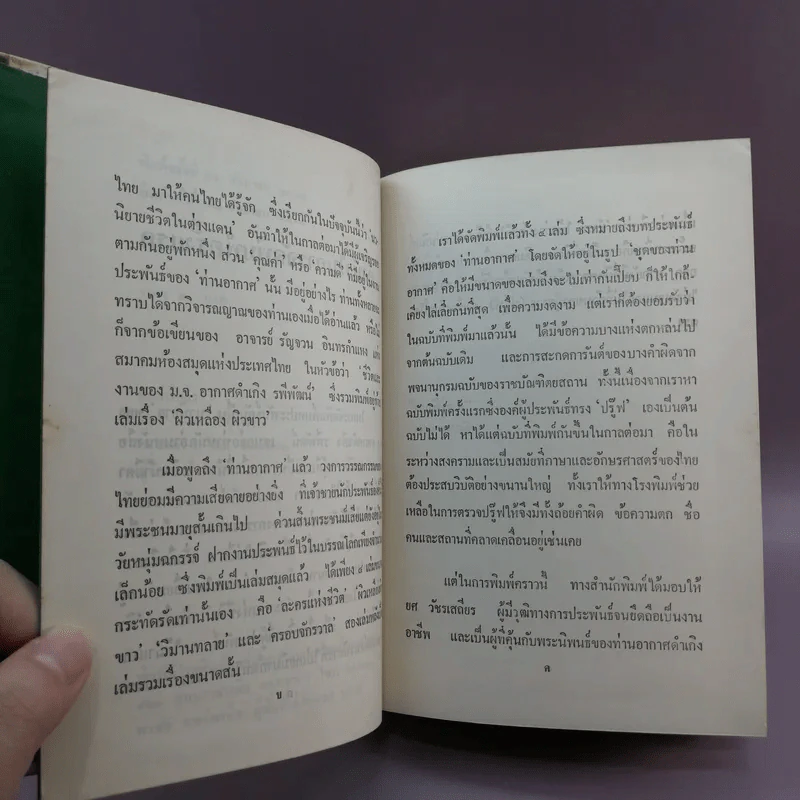 ไทย มาให้คนไทยได้รู้จัก ซึ่งเรียกกันในปัจจุบันนี้ว่า
นิยายชีวิตในต่างแดน' อันทำให้ในกาลต่อมาได้มีผู้เจริญรอย
ตามกันอยู่พักหนึ่ง ส่วน 'คุณค่า' หรือ 'ความดี' ที่มีอยู่ในงาน
ประพันธ์ของ 'ท่านอากาศ' นั้น มีอยู่อย่างไร ท่านทั้งหลาย
ทราบได้จากวิจารณญาณของท่านเองเมื่อได้อ่านแล้ว หรือ
ก็จากข้อเขียนของ อาจารย์ รัญจวน อินทรกำแหง แห่ง
สมาคมห้องสมุดแห่งประเทศไทย ในหัวข้อว่า 'ชีวิตและ
งานของ ม.จ. อากาศดำเกิง รพีพัฒน์' ซึ่งรวมพิมพ์อยู่
เล่มเรื่อง 'ผิวเหลือง ผิวขาว'
เมื่อพูดถึง 'ท่านอากาศ' แล้ว วงการวรรณกรรม
ไทยย่อมมีความเสียดายอย่างยิ่ง ที่เจ้าชายนักประพันธ์
มีพระชนมายุสั้นเกินไป ด่วนสิ้นพระชนม์เสียแต่
วัยหนุ่มฉกรรจ์ ฝากงานประพันธ์ไว้ในบรรณโลกเพียง
เล็กน้อย ซึ่งพิมพ์เป็นเล่มสมุดแล้ว ได้เพียง ๔ เล่ม
กระทัดรัดเท่านั้นเอง คือ 'ละครแห่งชีวิต' 'ผิวเหลือง
ขาว' 'วิมานทลาย' และ 'ครอบจักรวาล' สองเล่มหลัง
เล่มรวมเรื่องขนาดสั้น
ข
เราได้จัดพิมพ์แล้วทั้ง ๔ เล่ม ซึ่งหมายถึงบทประพันธ์
ทั้งหมดของ 'ท่านอากาศ' โดยจัดให้อยู่ในรูป 'ชุดของท่าน
อากาศ' คือให้มีขนาดของเล่มถึงจะไม่เท่ากันเปี๊ยบ ก็ให้ใกล้-
เคียงไล่เลี่ยกันที่สุด เพื่อความงดงาม แต่เราก็ต้องยอมรับว่า
ในฉบับที่พิมพ์มาแล้วนั้น ได้มีข้อความบางแห่งตกหล่นไป
จากต้นฉบับเดิม และการสะกดการันต์ของบางคำผิดจาก
พจนานุกรมฉบับของราชบัณฑิตยสถาน ทั้งนี้เนื่องจากเราหา
ฉบับพิมพ์ครั้งแรกซึ่งองค์ผู้ประพันธ์ทรง 'ปรู๊ฟ' เองเป็นต้น
ฉบับไม่ได้ หาได้แต่ฉบับที่พิมพ์กันขึ้นในกาลต่อมา คือใน
ระหว่างสงครามและเป็นสมัยที่ภาษาและอักษรศาสตร์ของไทย
ต้องประสบวิบัติอย่างขนานใหญ่ ทั้งเราให้ทางโรงพิมพ์ช่วย
เหลือในการตรวจปรู๊ฟให้จึงมีทั้งถ้อยคำผิด ข้อความตก ชื่อ
คนและสถานที่คลาดเคลื่อนอยู่เช่นเคย
แต่ในการพิมพ์คราวนี้ ทางสำนักพิมพ์ได้มอบให้
ยศ วัชรเสถียร ผู้มีวุฒิทางการประพันธ์จนยึดถือเป็นงาน
อาชีพ และเป็นผู้ที่คุ้นกับพระนิพนธ์ของท่านอากาศดำเกิง
ค